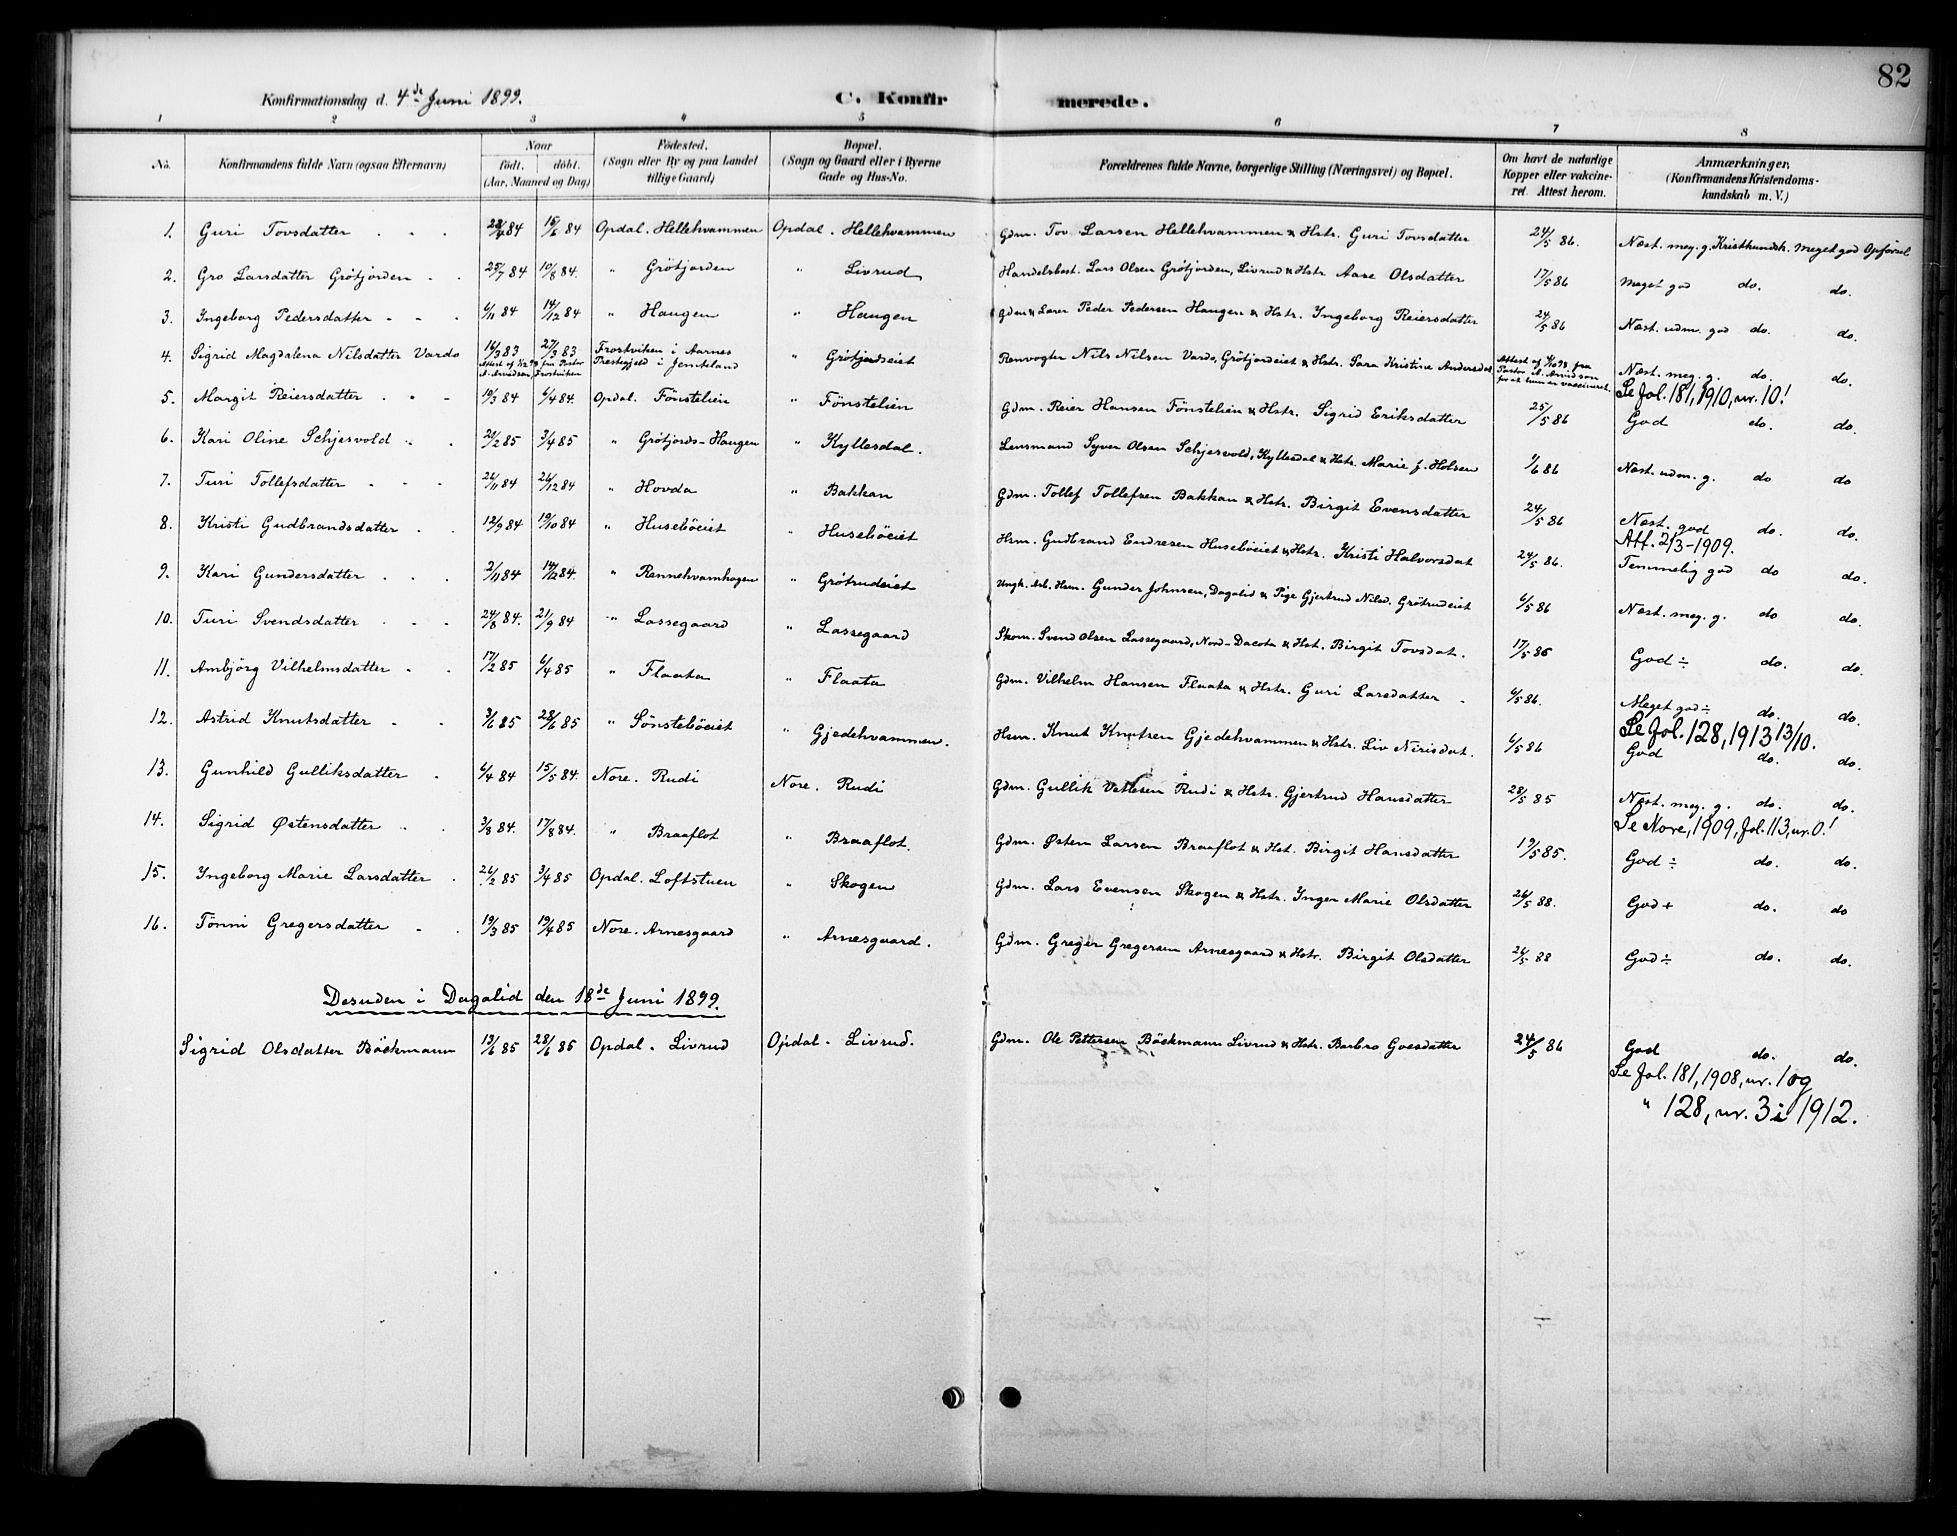 82
Konfirmationsdag d. 4de Juni 1899.
C. Konfirmerede.
1 2 3 4 5 6 7 8
No. Konfirmandens fulde Navn (ogsaa Efternavn) Naar født. døbt. (Aar, Maaned og Dag) Fødested. (Sogn eller By og paa Landet tillige Gaard) Bopæl. (Sogn og Gaard eller i Byerne Gade og Hus-No. Forældrenes fulde Navne, borgerlige Stilling (Næringsvei) og Bopæl. Om havt de naturlige Kopper eller vakcineret. Attest herom. Anmærkninger. (Konfirmandens Kristendomskundskab m. V.)
1. Guri Tovsdatter 84 15/6 84 Opdal. Hellehvammen Opdal. Hellehvammen Gdm. Tov Larsen Hellehvammen & Hstr. Guri Tovsdatter 24/5 86. Næst. meg. g. Kristkundsk. Meget god Opførsel
2. Gro Larsdatter Grøtjorden 25/7 84 10/8 84. " Grøtjorden " Livrud Handelsbest. Lars Olsen Grøtjorden, Livrud & Hstr. Aase Olsdatter 17/5 86 Meget god do. do.
3. Ingeborg Pedersdatter 6/11 84 14/12 84 " Haugen " Haugen Gdm. & Lærer Peder Pedersen Haugen & Hstr. Ingeborg Reiersdatter 24/5 86 Næst. udm. god do. do.
4. Sigrid Magdalena Nilsdatter Vardo 16/3 83 27/3 83 Frostviken i Aarnes Prestegjeld i Jemteland " Grøtjordeiet Renvogter Nils Nilsen Vardo, Grøtjordeiet & Hstr. Sara Kristine Andersdat. Attest af 1/10 98 fra Pastor A. Arvidson for at hun er vaccineret. Næst. meg. g. do. do.
Se fol. 181, 1910, nr. 10!
5. Margit Reiersdatter 10/3 84 6/4 84. Opdal. Fönstelien " Fönstelien Gdm. Reier Hansen Fönstelien & Hstr. Sigrid Eriksdatter 25/5 86 God do. do.
6. Kari Oline Schjesvold 21/2 85 3/4 85 " Grøtjords-Haugen " Kyllesdal. Lensmand Syver Olsen Schjesvold, Kyllesdal & Hstr. Marie f. Holsen 1/6 86 Næst. udm. g. do do
7. Turi Tollefsdatter 26/11 84 26/12 84 " Hovda " Bakkan Gdm. Tollef Tollefsen Bakkan & Hstr. Birgit Evensdatter 24/5 86 Næst. god do. do.
Att. 2/3-1909.
8. Kristi Gudbrandsdatter 12/9 84 19/10 84 " Huseböeiet " Huseböeiet Hsm. Gudbrand Endresen Huseböeiet & Hstr. Kristi Halvorsdat 24/5 86. Temmelig god do do.
9. Kari Gundersdatter 2/11 84 14/12 84. " Rennehvamhagen " Grötrudeiet Ungk. Arb. Hsm. Gunder Johnsen, Dagalid & Pige Gjertrud Nilsd. Grötrudeiet 6/5 86 Næst. meg. g. do do.
10. Turi Svendsdatter 24/8 84. 21/9 84 " Lassegaard " Lassegaard Skom. Svend Olsen Lassegaard, Nord-Dacota & Hst. Birgit Tovsdat. 17/5 86 God ÷ do. do.
11. Ambjörg Vilhelmsdatter 17/2 85 6/4 85 " Flaata " Flaata Gdm. Vilhelm Hansen Flaata & Hstr. Guri Larsdatter 6/5 86. Meget god ÷ do. do.
12. Astrid Knutsdatter 3/6 85 28/6 85 " Sönsteböeiet " Gjedehvammen. Hsm. Knut Knutsen Gjedehvammen & Hstr. Liv Nirisdat. 6/5 86 Se fol. 128, 1913 13/10.
God do. do.
13. Gunhild Gulliksdatter 6/4 84 15/5 84. Nore. Rudi Nore. Rudi Gdm. Gullik Vetlesen Rudi & Hstr. Gjertrud Hansdatter 28/5 85 Næst. meg. g. do. do.
Se Nore, 1909, fol. 113, nr. 0!
14. Sigrid Østensdatter 3/8 84. 17/8 84. " Braaflot " Braaflot. Gdm. Østen Larsen Braaflot & Hst. Birgit Hansdatter 19/5 85. God ÷ do. do.
15. Ingeborg Marie Larsdatter 26/2 85 3/4 85 Opdal. Loftstuen " Skogen Gdm. Lars Evensen Skogen & Hstr. Inger Marie Olsdatter 26/5 88. God + do. do
16. Tönni Gregersdatter 19/3 85 19/4 85 Nore. Arnesgaard " Arnesgaard. Gdm. Greger Gregersen Arnesgaard & Hstr. Birgit Olsdatter 26/5 88 God ÷ do. do.
Desuden i Dagalid den 18de Juni 1899.
Sigrid Olsdatter Böckmann 13/6 85 28/6 85 Opdal. Livrud Opdal. Livrud. Gdm. Ole Pettersen Böckmann Livrud & Hstr. Barbro Goesdatter 24/5 86 God do. do.
Se fol. 181, 1908, nr. 1 og
" 128, nr. 3 i 1912.